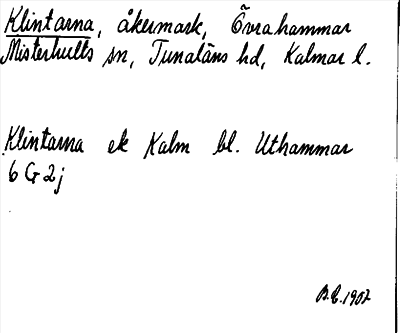 Klintarna, åkermark, Övrahammar
Misterhults sn, Tunaläns hd, Kalmar l.
Klintarna ek Kalm bl. Uthammar
6 G 2j
1907